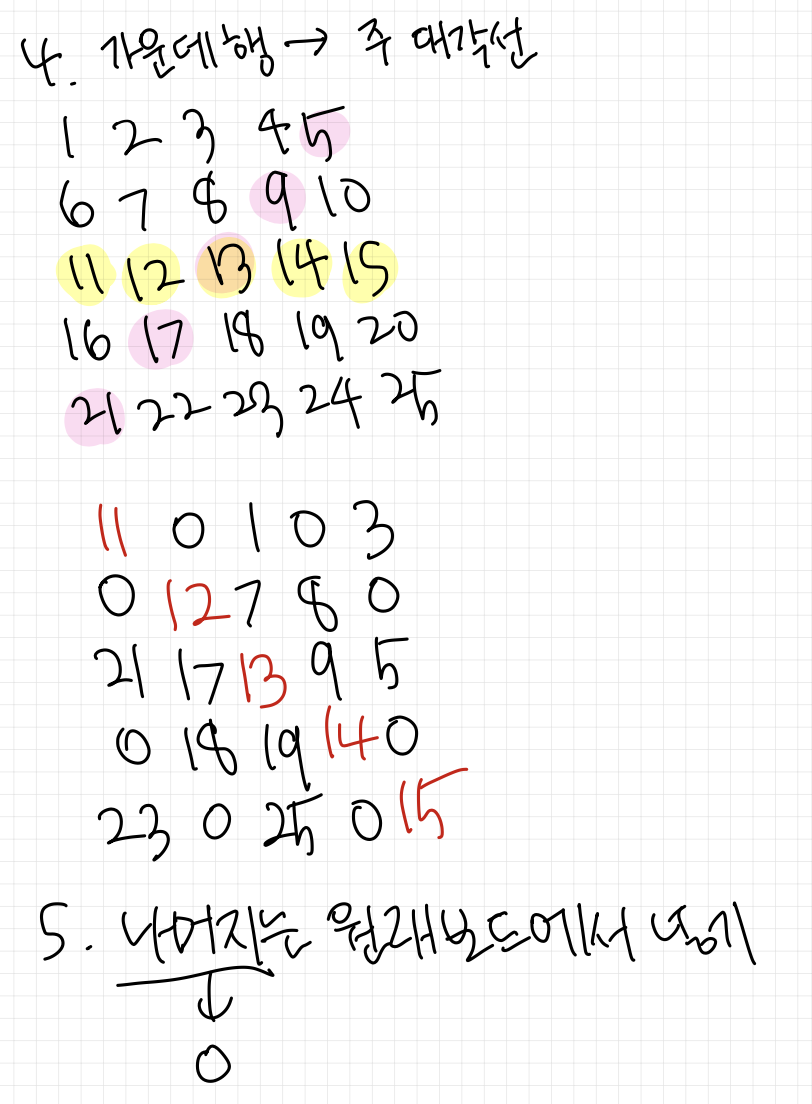 4. 가운데행 → 주 대각선
1 2 3 4 5
6 7 8 9 10
11 12 13 14 15
16 17 18 19 20
21 22 23 24 25
11 0 1 0 3
0 12 7 8 0
21 17 13 9 5
0 18 19 14 0
23 0 25 0 15
5. 나머지는 원래보드에서 넣기
↓
0